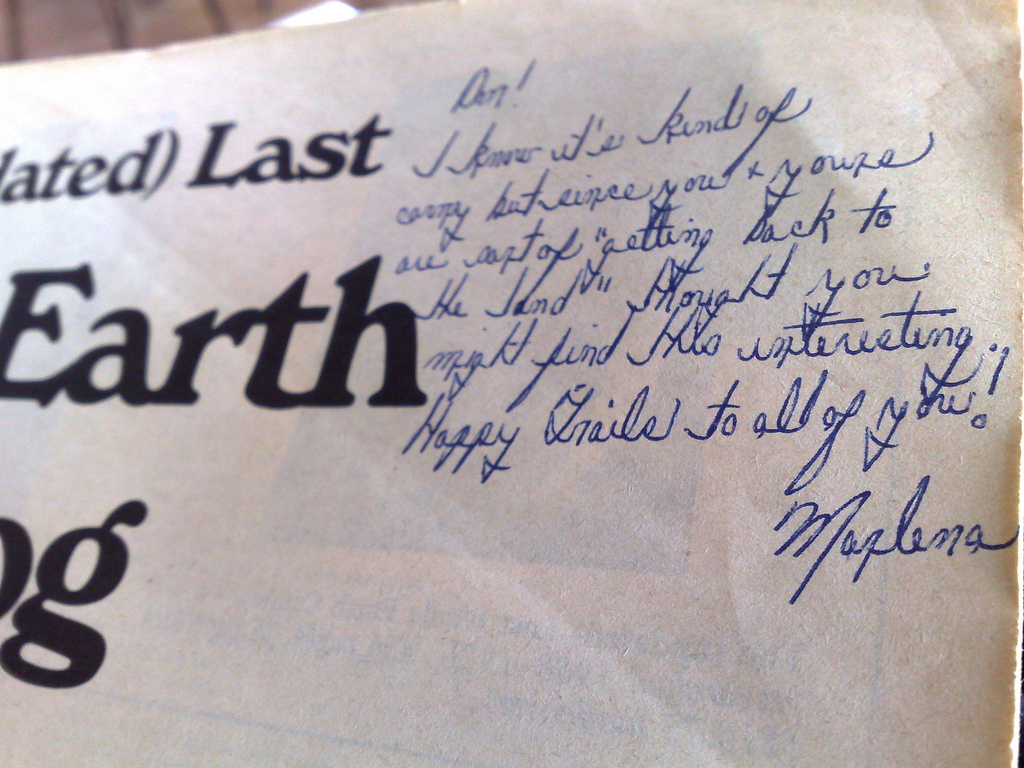 dated) Last
Earth
og
Don!
I know it's kind of
corny but since you + yours
are sort of "getting back to
the land" thought you
might find this interesting!
Happy Trails to all of you!
Marlena